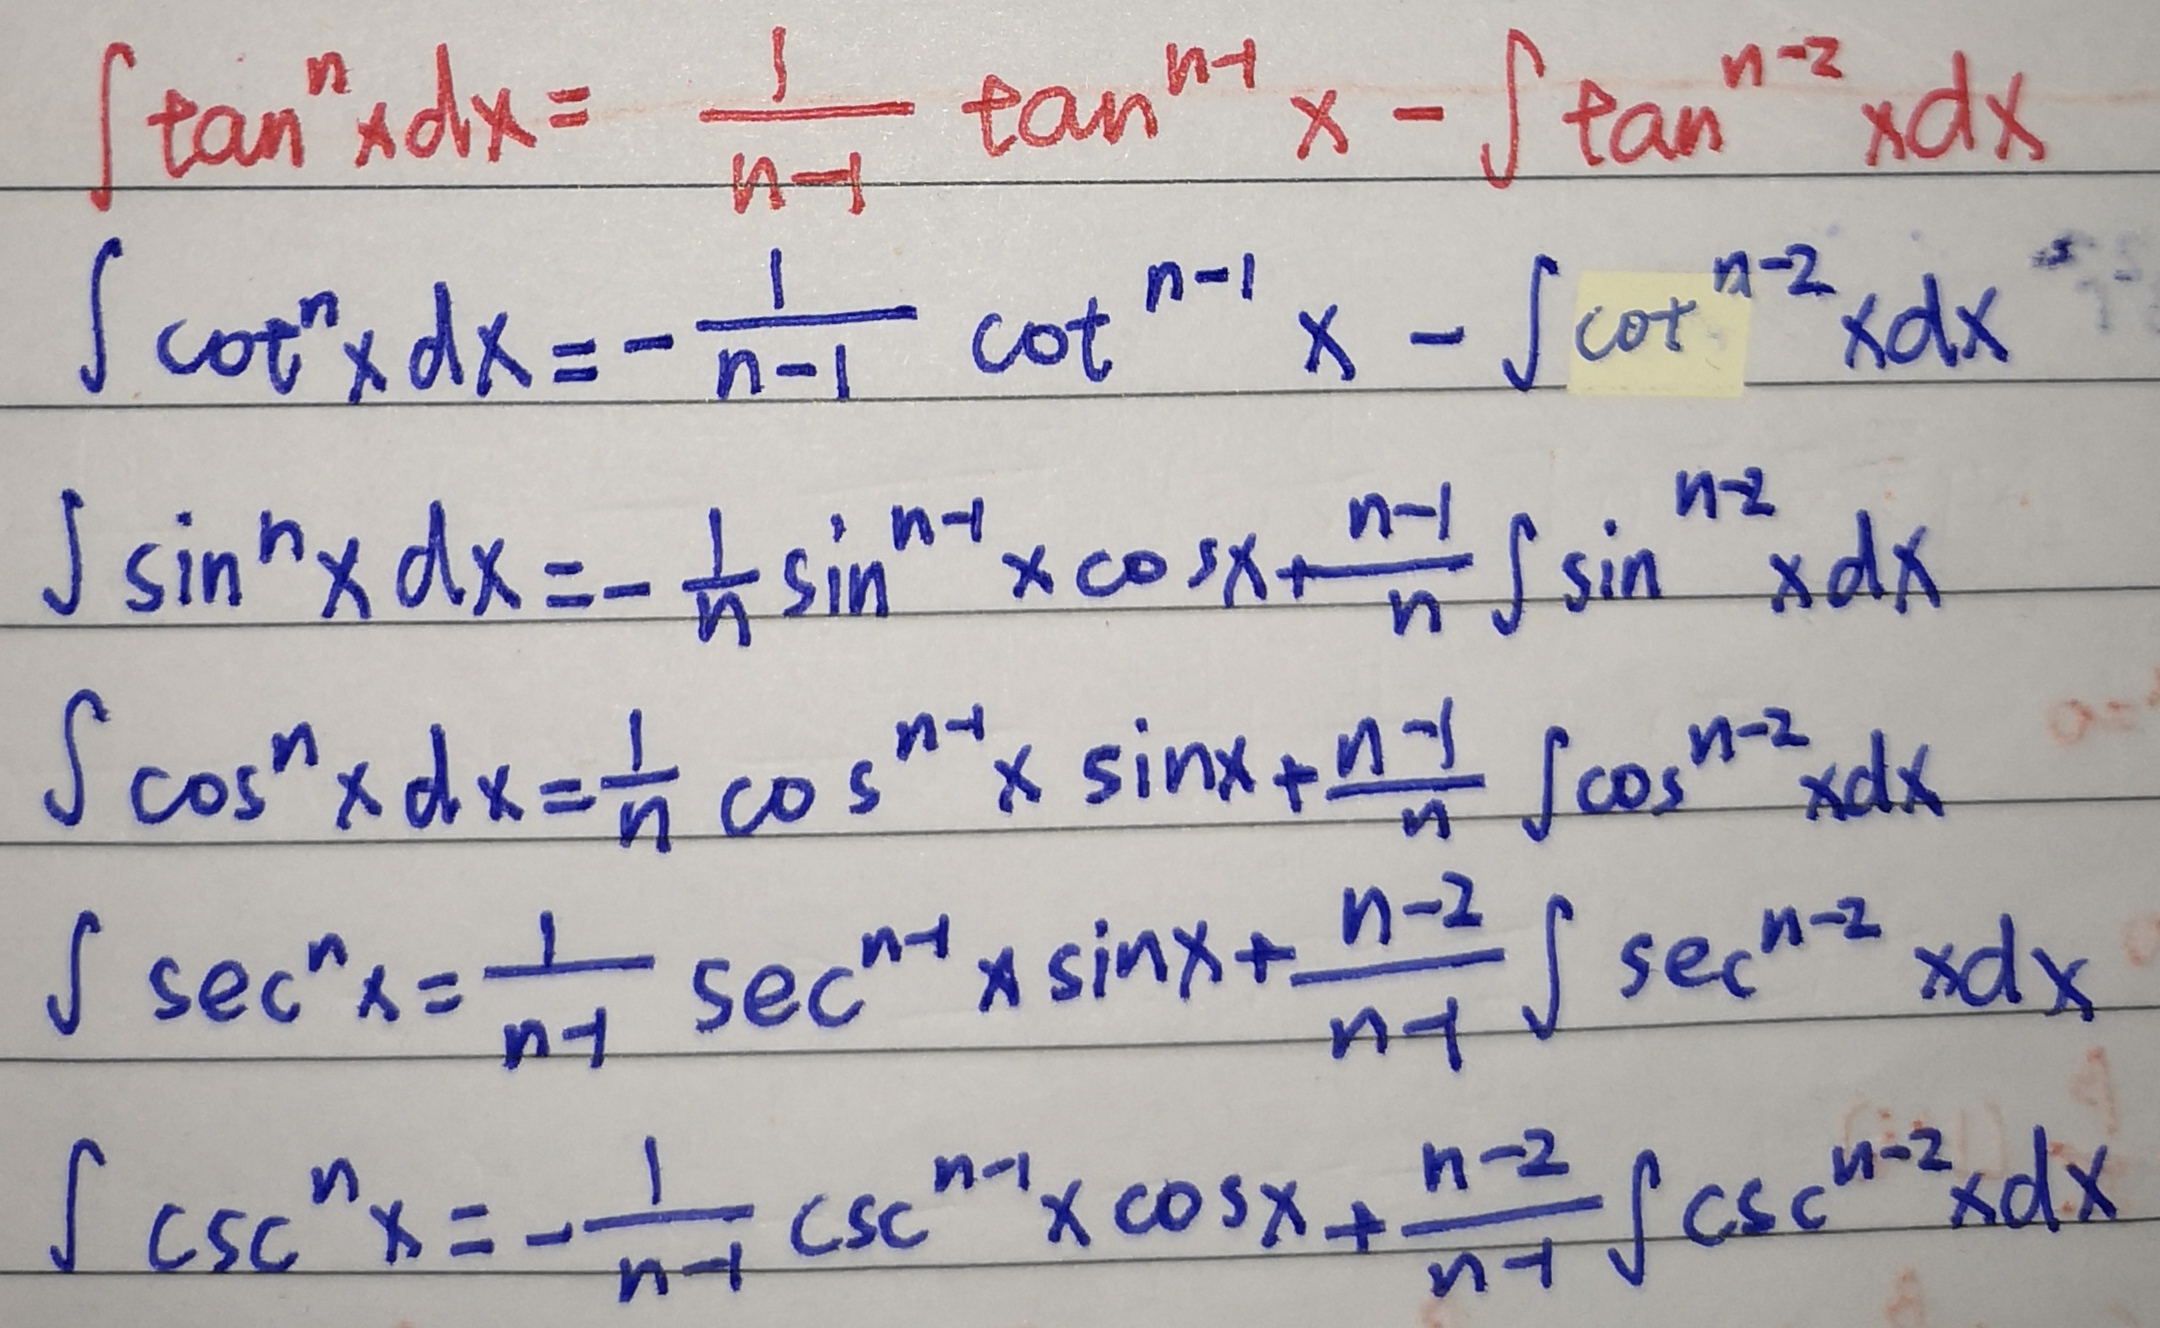 ∫tanⁿxdx = 1/(n-1) tanⁿ⁻¹ x - ∫tanⁿ⁻² xdx
∫cotⁿxdx = - 1/(n-1) cotⁿ⁻¹ x - ∫cotⁿ⁻² xdx
∫sinⁿxdx = - 1/n sinⁿ⁻¹ x cosx + (n-1)/n ∫sinⁿ⁻² xdx
∫cosⁿxdx = 1/n cosⁿ⁻¹ x sinx + (n-1)/n ∫cosⁿ⁻² xdx
∫secⁿx = 1/(n-1) secⁿ⁻¹ x sinx + (n-2)/(n-1) ∫secⁿ⁻² xdx
∫cscⁿx = - 1/(n-1) cscⁿ⁻¹ x cosx + (n-2)/(n-1) ∫cscⁿ⁻² xdx